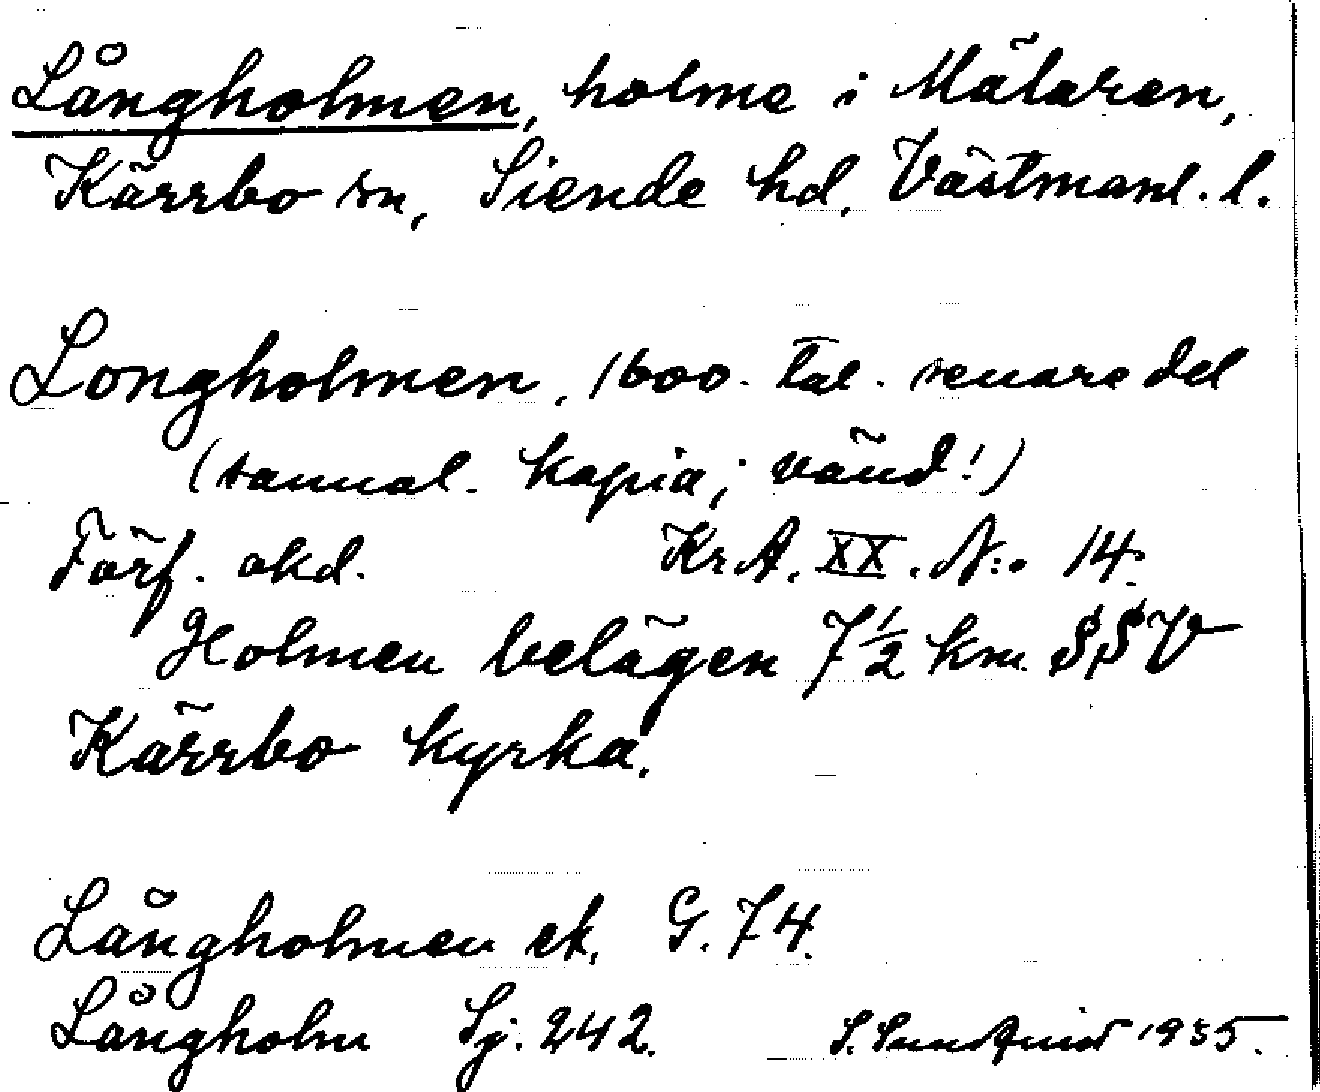 Långholmen, holme i Mälaren,
Kärrbo sn, Siende hd, Västmanl. l.
Longholmen, 1600-tal. senare del
(samal. kopia; vänd!)
Förf. okd. Kr.A. XX. N:o 14.
Holmen belägen 7½ km SSV
Kärrbo kyrka.
Långholmen ek. G. 74.
Långholm Sj. 242. S. Sundquist 1935.